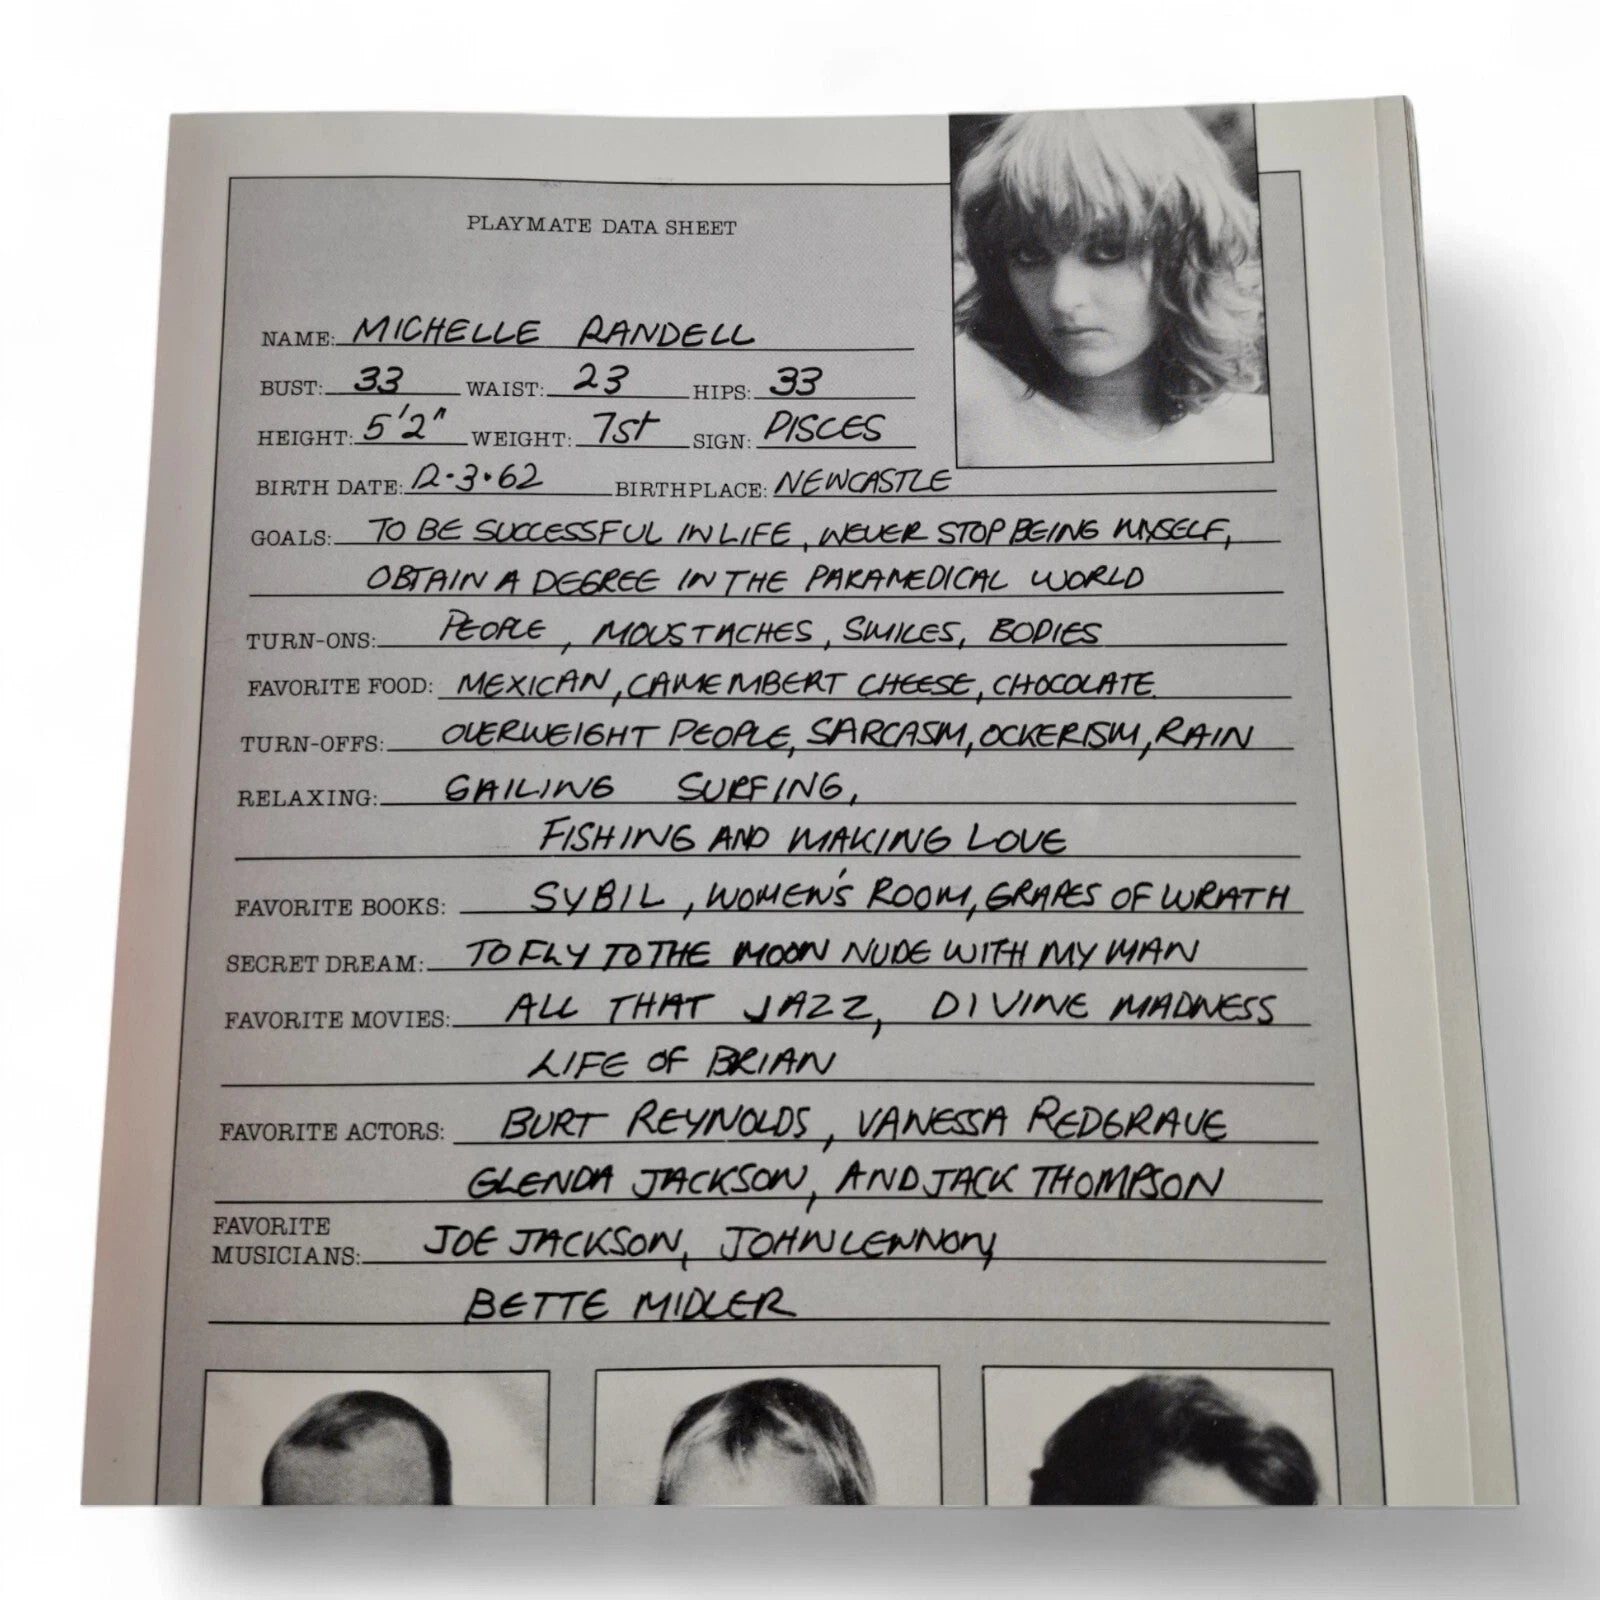 PLAYMATE DATA SHEET
NAME: MICHELLE RANDELL
BUST: 33 WAIST: 23 HIPS: 33
HEIGHT: 5'2" WEIGHT: 7st SIGN: PISCES
BIRTH DATE: 12·3·62 BIRTHPLACE: NEWCASTLE
GOALS: TO BE SUCCESSFUL IN LIFE, NEVER STOP BEING MYSELF,
OBTAIN A DEGREE IN THE PARAMEDICAL WORLD
TURN-ONS: PEOPLE, MOUSTACHES, SMILES, BODIES
FAVORITE FOOD: MEXICAN, CAMEMBERT CHEESE, CHOCOLATE.
TURN-OFFS: OVERWEIGHT PEOPLE, SARCASM, OCKERISM, RAIN
RELAXING: SAILING SURFING,
FISHING AND MAKING LOVE
FAVORITE BOOKS: SYBIL, WOMEN'S ROOM, GRAPES OF WRATH
SECRET DREAM: TO FLY TO THE MOON NUDE WITH MY MAN
FAVORITE MOVIES: ALL THAT JAZZ, DIVINE MADNESS
LIFE OF BRIAN
FAVORITE ACTORS: BURT REYNOLDS, VANESSA REDGRAVE
GLENDA JACKSON, AND JACK THOMPSON
FAVORITE
MUSICIANS: JOE JACKSON, JOHN LENNON,
BETTE MIDLER